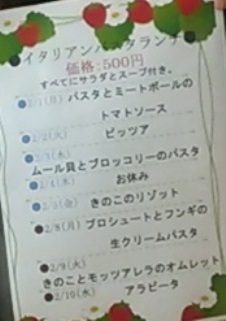 イタリアンパスタランチ
価格:500円
すべてにサラダとスープ付き。
●2/1(月) パスタとミートボールの
トマトソース
●2/2(火) ピッツア
●2/3(水)
ムール貝とブロッコリーのパスタ
●2/4(木) お休み
●2/5(金) きのこのリゾット
●2/8(月) プロシュートとフンギの
生クリームパスタ
●2/9(火)
きのことモッツアレラのオムレット
●2/10(水) アラビータ